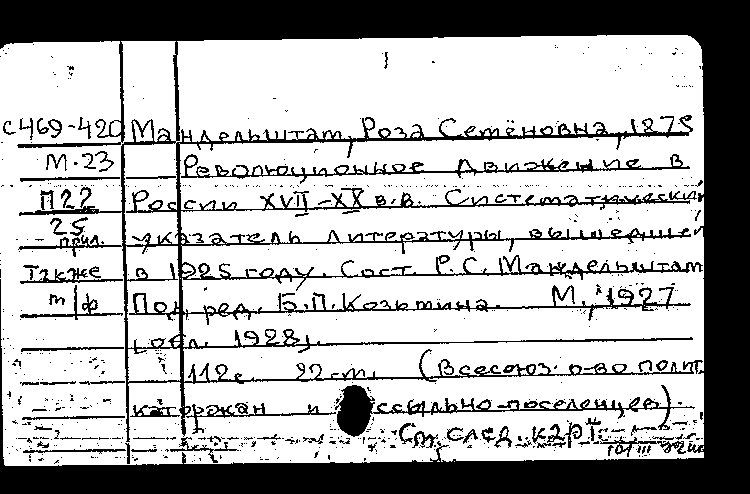 с469-420 Мандельштам, Роза Семёновна, 1875
М-23 Революционное движение в
П22 России XVII-XX в.в. Систематический
25 прил. указатель литературы, вышедшей
также в 1925 году. Сост. Р.С. Мандельштам
т/ф Под ред. Б.П. Козьмина. М., 1927
[обл. 1928].
112с. 22 cm. (Всесоюз. о-во полит
каторжан и ссыльно-поселенцев).
См. след. карт.
10/III